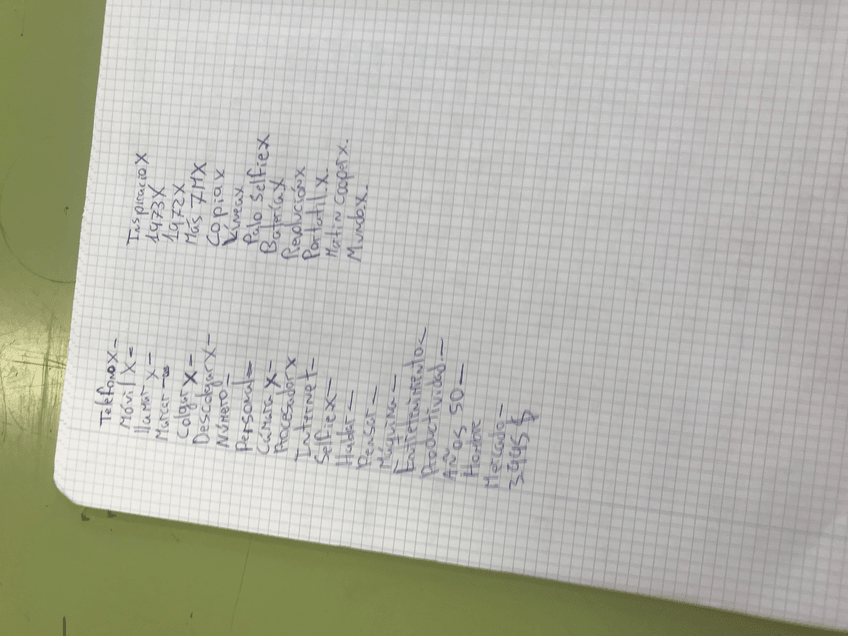 Teléfono X -
Móvil X -
llamar X -
Marcar -
Colgar X -
Descolgar X -
Número -
Personal -
Cámara X -
Procesador X
Internet -
Selfie X -
Hablar -
Pensar -
Máquina -
Entretenimiento -
Productividad -
Años 50 -
Hombre
Mercado -
3995 $
Inspiración X
1973 X
1972 X
Más 7M X
Copia X
Líneas X
Palo selfie X
Batería X
Revolución X
Portatil X.
Matin Cooper X.
Mundo X.